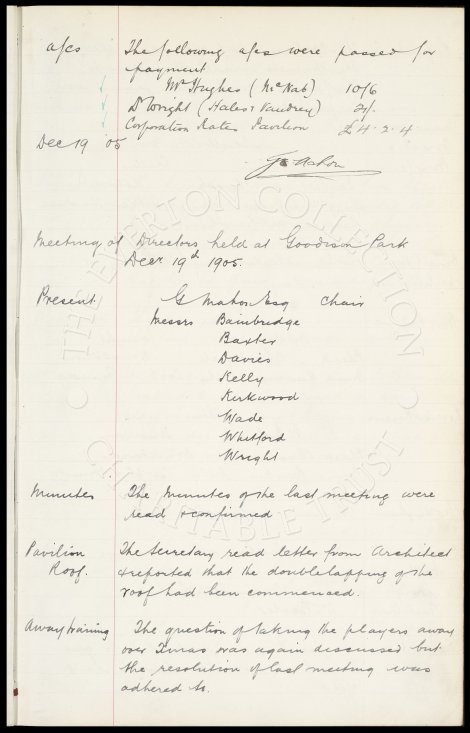 a/cs The following a/cs were passed for
payment
Mr Hughes (McNab) 10/6
Dr Wright (Hales & Vaudrey) 21/.
Corporation Rates Pavilion £4.2.4
Dec 19 05
G Mahon
Meeting of Directors held at Goodison Park
Decr 19th 1905.
Present. G Mahon Esq Chair
Messrs Bainbridge
Baxter
Davies
Kelly
Kirkwood
Wade
Whitford
Wright
Minutes The Minutes of the last meeting were
read & confirmed
Pavilion The Secretary read letter from Architect
Roof. & reported that the doublelapping of the
roof had been commenced.
Away training The question of taking the players away
over Xmas was again discussed but
the resolution of last meeting was
adhered to.
THE EVERTON COLLECTION
CHARITABLE TRUST